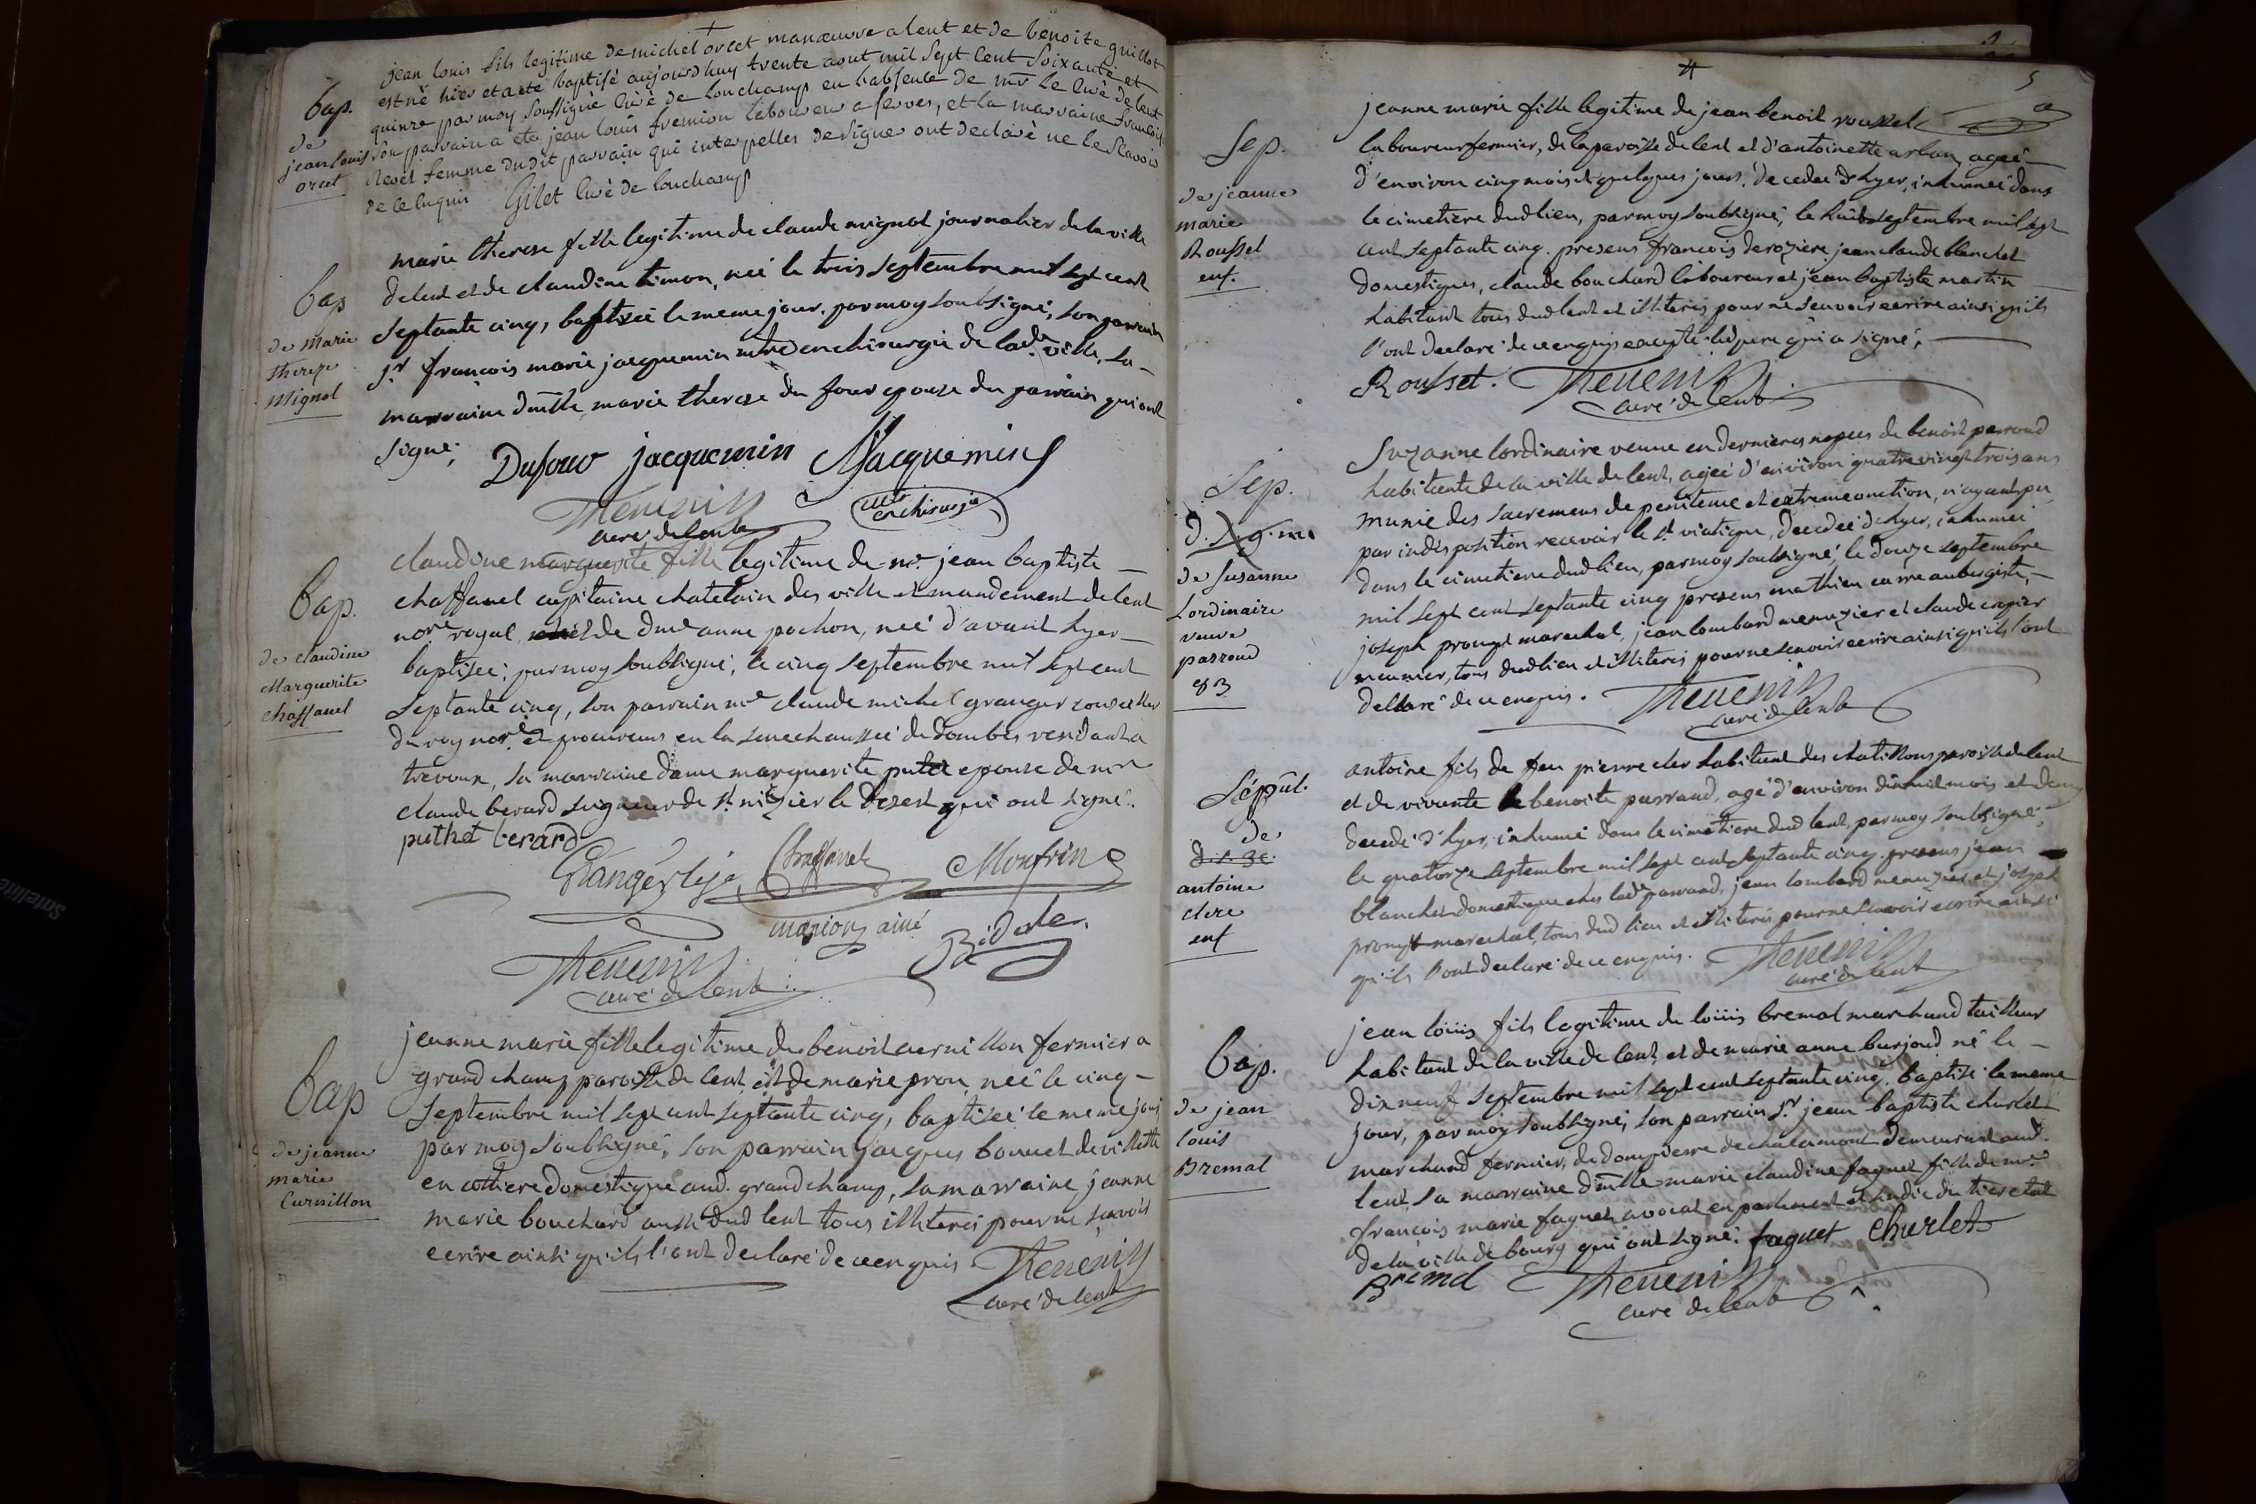 bap.
de
jean louis
orcet
jean louis fils legitime de michel orcet manœuvre a lent et de benoite guillot
est né hier et a ete baptisé aujourd'huy trente aout mil sept cent soixante et
quinze par moy soussigné curé de lonchamp en l'absence de mr le curé de lent
son parrain a ete jean louis fremion laboureur a serves, et la marraine francoise
revel femme dudit parrain qui interpelles de signer ont declaré ne le scavoir
de ce enquis Gilet curé de lonchamp
bap
de marie
therese
Mignol
marie therese fille legitime de claude mignol journalier de la ville
de lent et de claudine timon, née le trois septembre mil sept cent
septante cinq, baptisée le meme jour, par moy soubsigné, son parrain
sr francois marie jacquemin mtre en chirurgie de lade ville, sa
marraine dmlle marie therese du four epouse du parrain qui ont
signé;
Dufour jacquemin Mjacquemin
mtre en chirurgie
Thevenin
curé de lent
bap.
de claudine
Marguerite
Chaffanel
claudine marguerite fille legitime de mr jean baptiste
chaffanel capitaine chatelain des ville et mandement de lent
nore royal, et de dme anne pochon, née d'avant hyer
baptisée; par moy soubsigné, le cinq septembre mil sept cent
septante cinq, son parrain mre claude michel granger conseiller
du roy nore et procureur en la senechaussée de dombes rendant a
trevoux, sa marraine dame marguerite putet epouse de mr
claude berard seigneur de st nizier le desert qui ont signé.
puthet berard
Granger lejé Chaffanel Monfrin
marion ainé Bidode
Thevenin
curé de lent
bap
de jeanne
marie
Curnillon
jeanne marie fille legitime de benoit curnillon fermier a
grand champ paroisse de lent et de marie prou née le cinq
septembre mil sept cent septante cinq, baptisée le meme jour
par moy soubsigné, son parrain jacques bouvet de villette
en cottiere domestique aud. grand champ, sa marraine jeanne
marie bouchard aussi dud lent tous illiterés pour ne scavoir
ecrire ainsi qu'ils l'ont declaré de ce enquis Thevenin
curé de lent
5
Sep.
de jeanne
marie
Rousset
enf.
jeanne marie fille legitime de jean benoit rousset
laboureur fermier, de la paroisse de lent et d'antoinette arban, agée
d'environ cinq mois et quelques jours, decedée d'hyer, inhumée dans
le cimetiere dud lieu, par moy soubsigné, le huit septembre mil sept
cent septante cinq. presens francois deroziere jean claude blanchet
domestiques, claude bouchard laboureur et jean baptiste martin
habitant tous dud lent et illiterés pour ne scavoir ecrire ainsi qu'ils
l'ont declaré de ce enquis excepté led pere qui a signé;
Rousset. Thevenin
curé de lent
Sep.
de Susanne
Lordinaire
veuve
parroud
Suzanne lordinaire veuve en dernieres nopces de benoit parroud
habitante de la ville de lent, agée d'environ quatre vingt trois ans
munie des sacremens de penitence et extreme onction, n'ayant pu
par indisposition recevoir le st viatique, decedée d'hyer, inhumée
dans le cimetiere dud lieu, par moy soubsigné, le douze septembre
mil sept cent septante cinq presens mathieu carre aubergiste,
joseph prompt marechal, jean lombard menuzier et claude crozier
meunier, tous dud lieu et illiterés pour ne scavoir ecrire ainsi qu'ils l'ont
declaré de ce enquis. Thevenin
curé de lent
Sépult.
de
antoine
clere
enf
antoine fils de feu pierre cler habitant des chatillons paroisse de lent
et de vivante benoite parraud, agé d'environ dix huit mois et demy
decedé d'hyer, inhumé dans le cimetiere dud lent, par moy soubsigné,
le quatorze septembre mil sept cent septante cinq presens jean
blanchet domestique chez lade parraud, jean lombard menuzier et joseph
prompt marechal, tous dud lieu et illiterés pour ne scavoir ecrire ainsi
qu'ils l'ont declaré de ce enquis. Thevenin
curé de lent
bap.
de jean
louis
Bremal
jean loüis fils legitime de loüis bremal marchand tailleur
habitant de la ville de lent, et de marie anne burjoud né le
dix neuf septembre mil sept cent septante cinq. baptisé le meme
jour, par moy soubsigné, son parrain sr jean baptiste churlet
marchand fermier, de dompierre de chalamont demeurant aud.
lent, sa marraine dmlle marie claudine faguet fille de mre
francois marie faguet avocat en parlement et sindic du tiers etat
de la ville de bourg qui ont signé. faguet Churlet
Bremal Thevenin
curé de lent